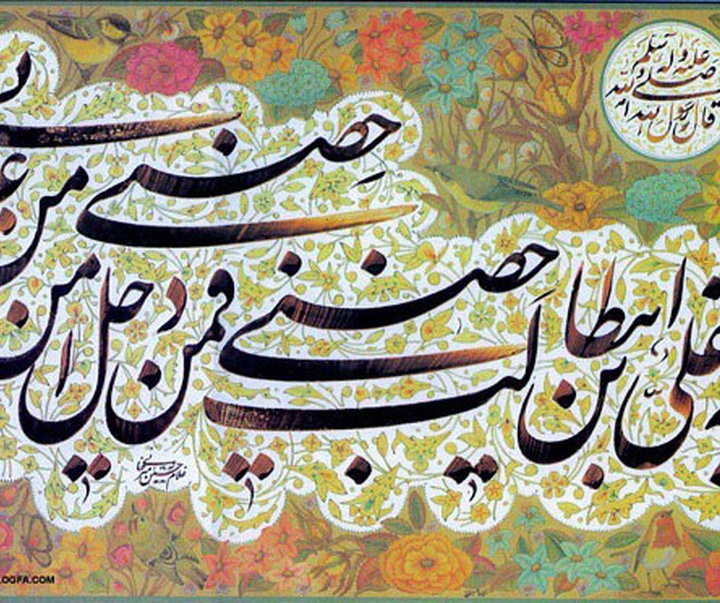 قال رسول الله
صلی الله
علیه و آله و سلم
علی بن ابیطالب حصنی فمن دخل حصنی امن من
غلامحسین امیرخانی
LOGFA.COM